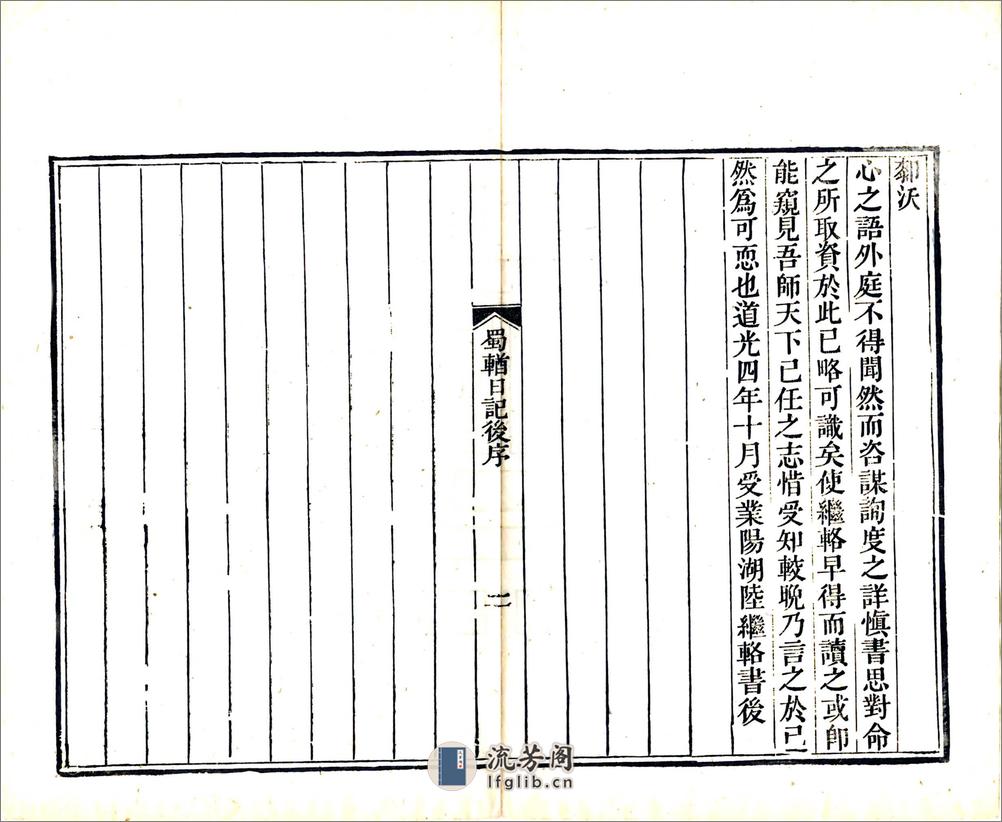 鄰沃
心之語外庭不得聞然而咨謀詢度之詳慎書思對命
之所取資於此已略可識矣使繼輅早得而讀之或卽
能窺見吾師天下已任之志惜受知較晚乃言之於已
然爲可恧也道光四年十月受業陽湖陸繼輅書後
蜀輶日記後序
二
流芳阁
lfglib.cn